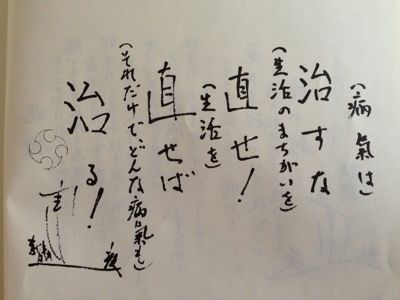 (病氣は)
治すな
(生活のまちがいを)
直せ!
(生活を)
直せば
(それだけで、どんな病氣も)
治る!